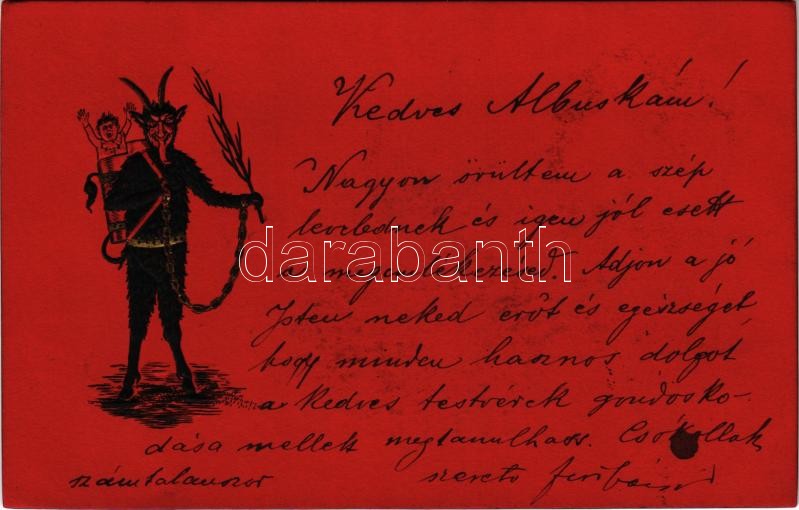 Kedves Albuskám!
Nagyon örültem a szép
levelednek és igen jól esett
a megemlékezésed. Adjon a jó
Isten neked erőt és egészséget
hogy minden hasznos dolgot
a kedves testvérek gondosko-
dása mellett megtanulhass. Csókollak
számtalanszor szerető feribácsi
darabanth